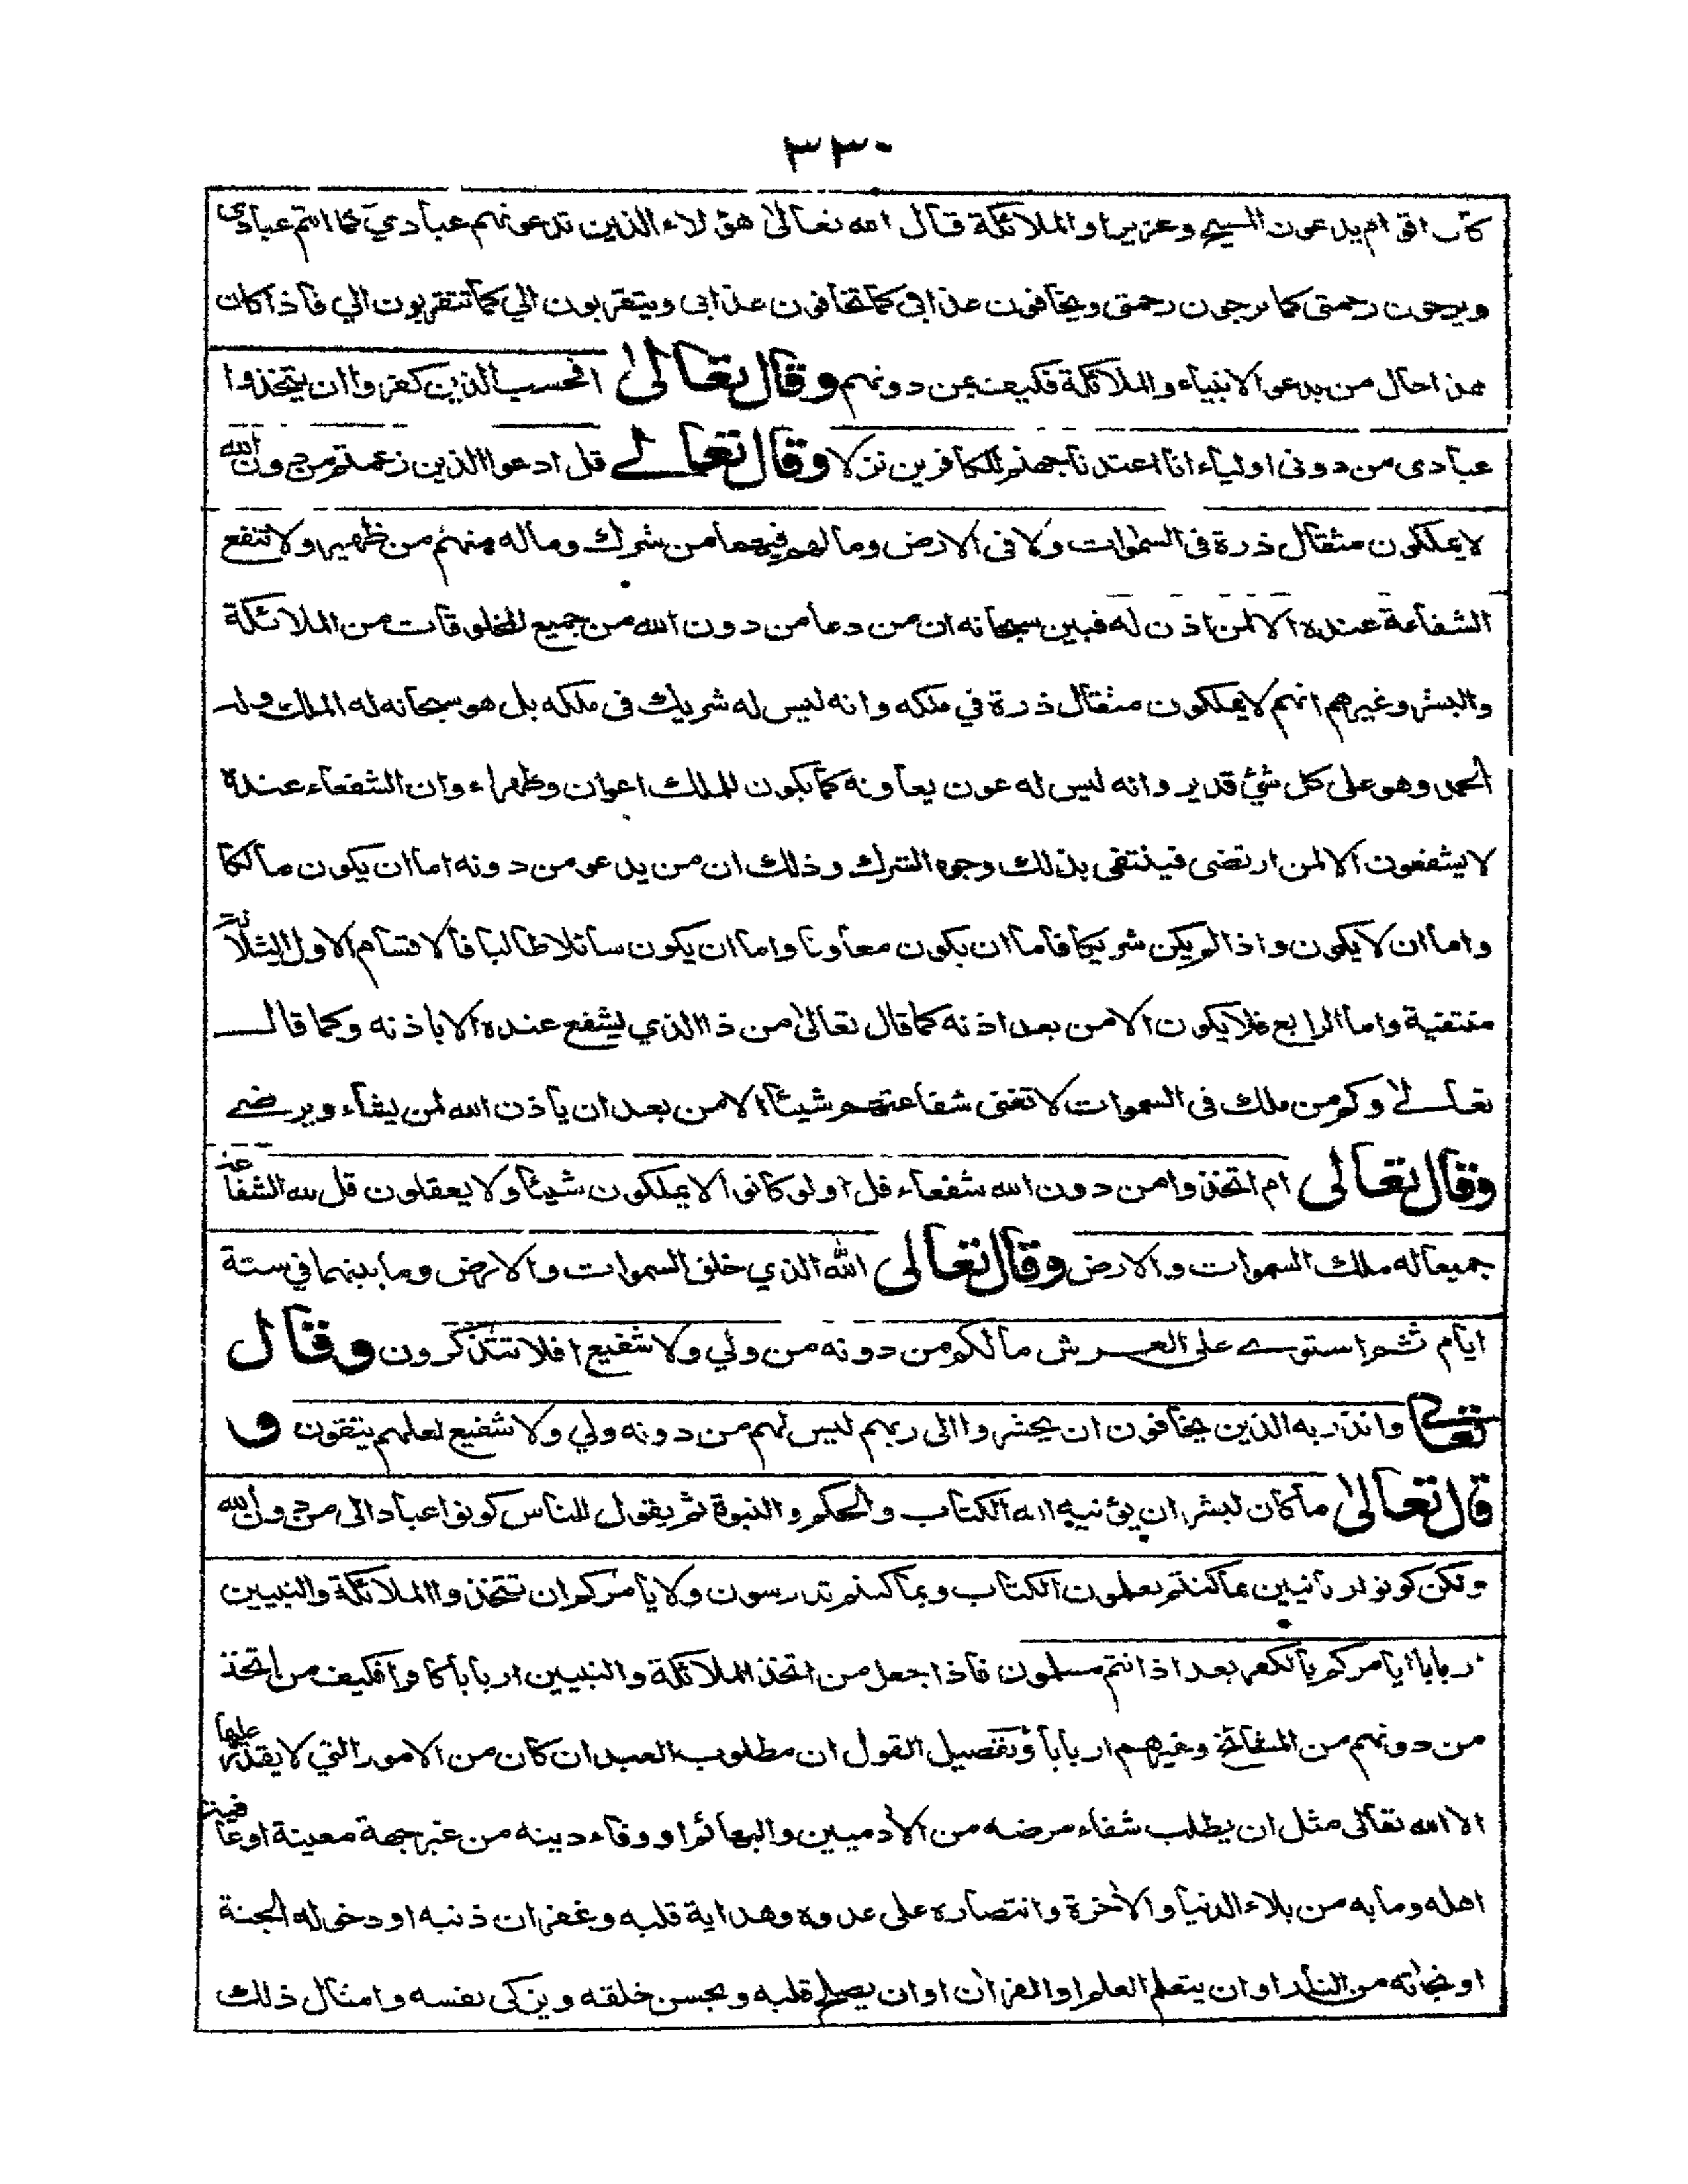 ٣٣٠
كان اقوام يدعون المسيح وعزيرا والملائكة قال الله تعالى هؤلاء الذين تدعونهم عبادي كما انتم عبادي
ويرجون رحمتى كما ترجون رحمتى ويخافون عذابى كما تخافون عذابى ويتقربون الي كما تتقربون الي فاذا كان
هذا حال من يدعو الانبياء والملائكة فكيف بمن دونهم وقال تعالى افحسب الذين كفروا ان يتخذوا
عبادى من دونى اولياء انا اعتدنا جهنم للكافرين نزلا وقال تعالے قل ادعوا الذين زعمتم من دون الله
لا يملكون مثقال ذرة فى السموات ولا فى الارض وما لهم فيهما من شرك وما له منهم من ظهير ولا تنفع
الشفاعة عنده الا لمن اذن له فبين سبحانه ان من دعا من دون الله من جميع المخلوقات من الملائكة
والبشر وغيرهم انهم لا يملكون مثقال ذرة في ملكه وانه ليس له شريك فى ملكه بل هو سبحانه له الملك وله
الحمد وهو على كل شئ قدير وانه ليس له عون يعاونه كما يكون للملك اعوان وظهراء وان الشفعاء عنده
لا يشفعون الا لمن ارتضى فينتفى بذلك وجوه الشرك وذلك ان من يدعو من دونه اما ان يكون مالكا
واما ان لا يكون واذا لم يكن شريكا فاما ان يكون معاونا واما ان يكون سائلا طالبا فالاقسام الاول الثلاثة
منتفية واما الرابع فلا يكون الا من بعد اذنه كما قال تعالى من ذا الذي يشفع عنده الا باذنه وكما قال
تعالے وكم من ملك فى السموات لا تغنى شفاعتهم شيئا الا من بعد ان ياذن الله لمن يشاء ويرضے
وقال تعالى ام اتخذوا من دون الله شفعاء قل اولو كانوا لا يملكون شيئا ولا يعقلون قل لله الشفاعة
جميعا له ملك السموات والارض وقال تعالى الله الذي خلق السموات والارض وما بينهما في ستة
ايام ثم استوے على العرش مالكم من دونه من ولي ولا شفيع افلا تتذكرون وقال
تعالے وانذر به الذين يخافون ان يحشروا الى ربهم ليس لهم من دونه ولي ولا شفيع لعلهم يتقون و
قال تعالى ما كان لبشر ان يؤتيه الله الكتاب والحكم والنبوة ثم يقول للناس كونوا عبادا لى من دون الله
ولكن كونوا ربانيين بما كنتم تعلمون الكتاب وبما كنتم تدرسون ولا يامركم ان تتخذوا الملائكة والنبيين
اربابا ايامركم بالكفر بعد اذ انتم مسلمون فاذا جعل من اتخذ الملائكة والنبيين اربابا كافرا فكيف من اتخذ
من دونهم من المشائخ وغيرهم اربابا وتفصيل القول ان مطلوب العبد ان كان من الامور التي لا يقدر عليها
الا الله تعالى مثل ان يطلب شفاء مرضه من الآدميين والبهائم او وفاء دينه من غير جهة معينة او عافية
اهله وما به من بلاء الدنيا والآخرة وانتصاره على عدوه وهداية قلبه وغفران ذنبه او دخوله الجنة
او نجاته من النار او ان يتعلم العلم او القرآن او ان يصلح قلبه ويحسن خلقه ويزكى نفسه وامثال ذلك